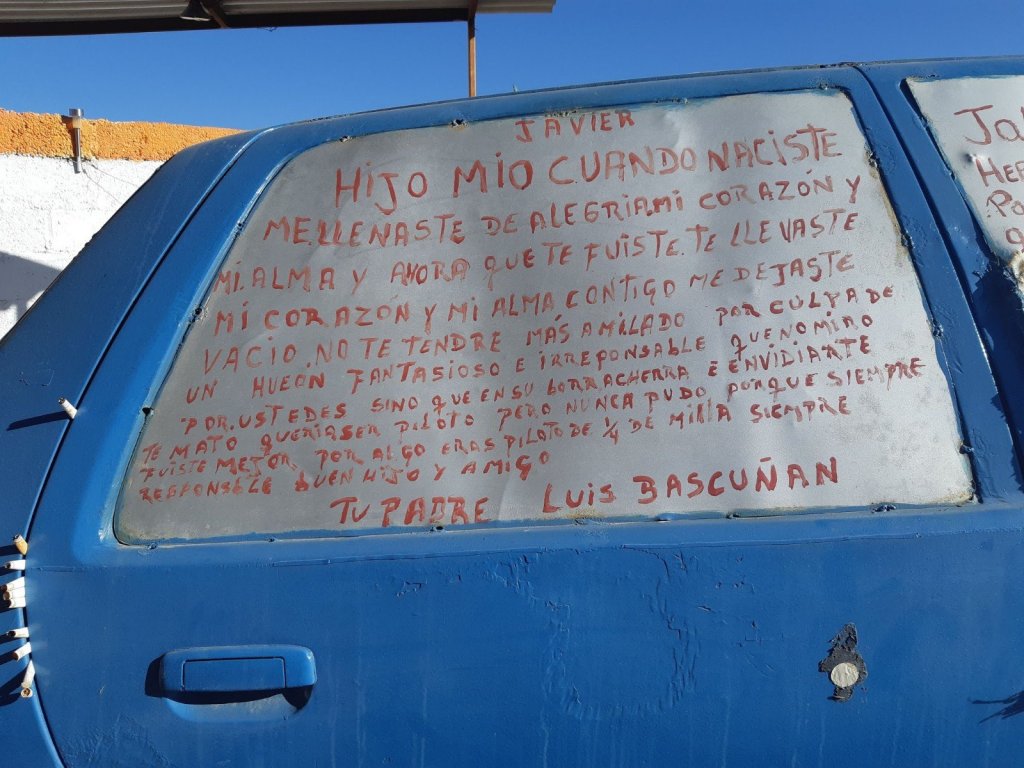 JAVIER
HIJO MIO CUANDO NACISTE
ME.LLENASTE DE ALEGRIA.MI CORAZÓN Y
MI.ALMA Y AHORA QUE TE FUISTE.TE LLEVASTE
MI CORAZÓN Y MI ALMA CONTIGO ME DEJASTE
VACIO.NO TE TENDRE MÁS A MI LADO POR CULPA DE
UN HUEÓN FANTASIOSO E IRREPONSABLE QUE NO MIRO
POR.USTEDES SINO QUE EN SU BORRACHERRA E ENVIDIANTE
TE MATO QUERIA SER PILOTO PERO NUNCA PUDO PORQUE SIEMPRE
FUISTE MEJOR, POR ALGO ERAS PILOTO DE 1/4 DE MILLA SIEMPRE
RESPONSABLE BUEN HIJO Y AMIGO
TU PADRE LUIS BASCUÑAN